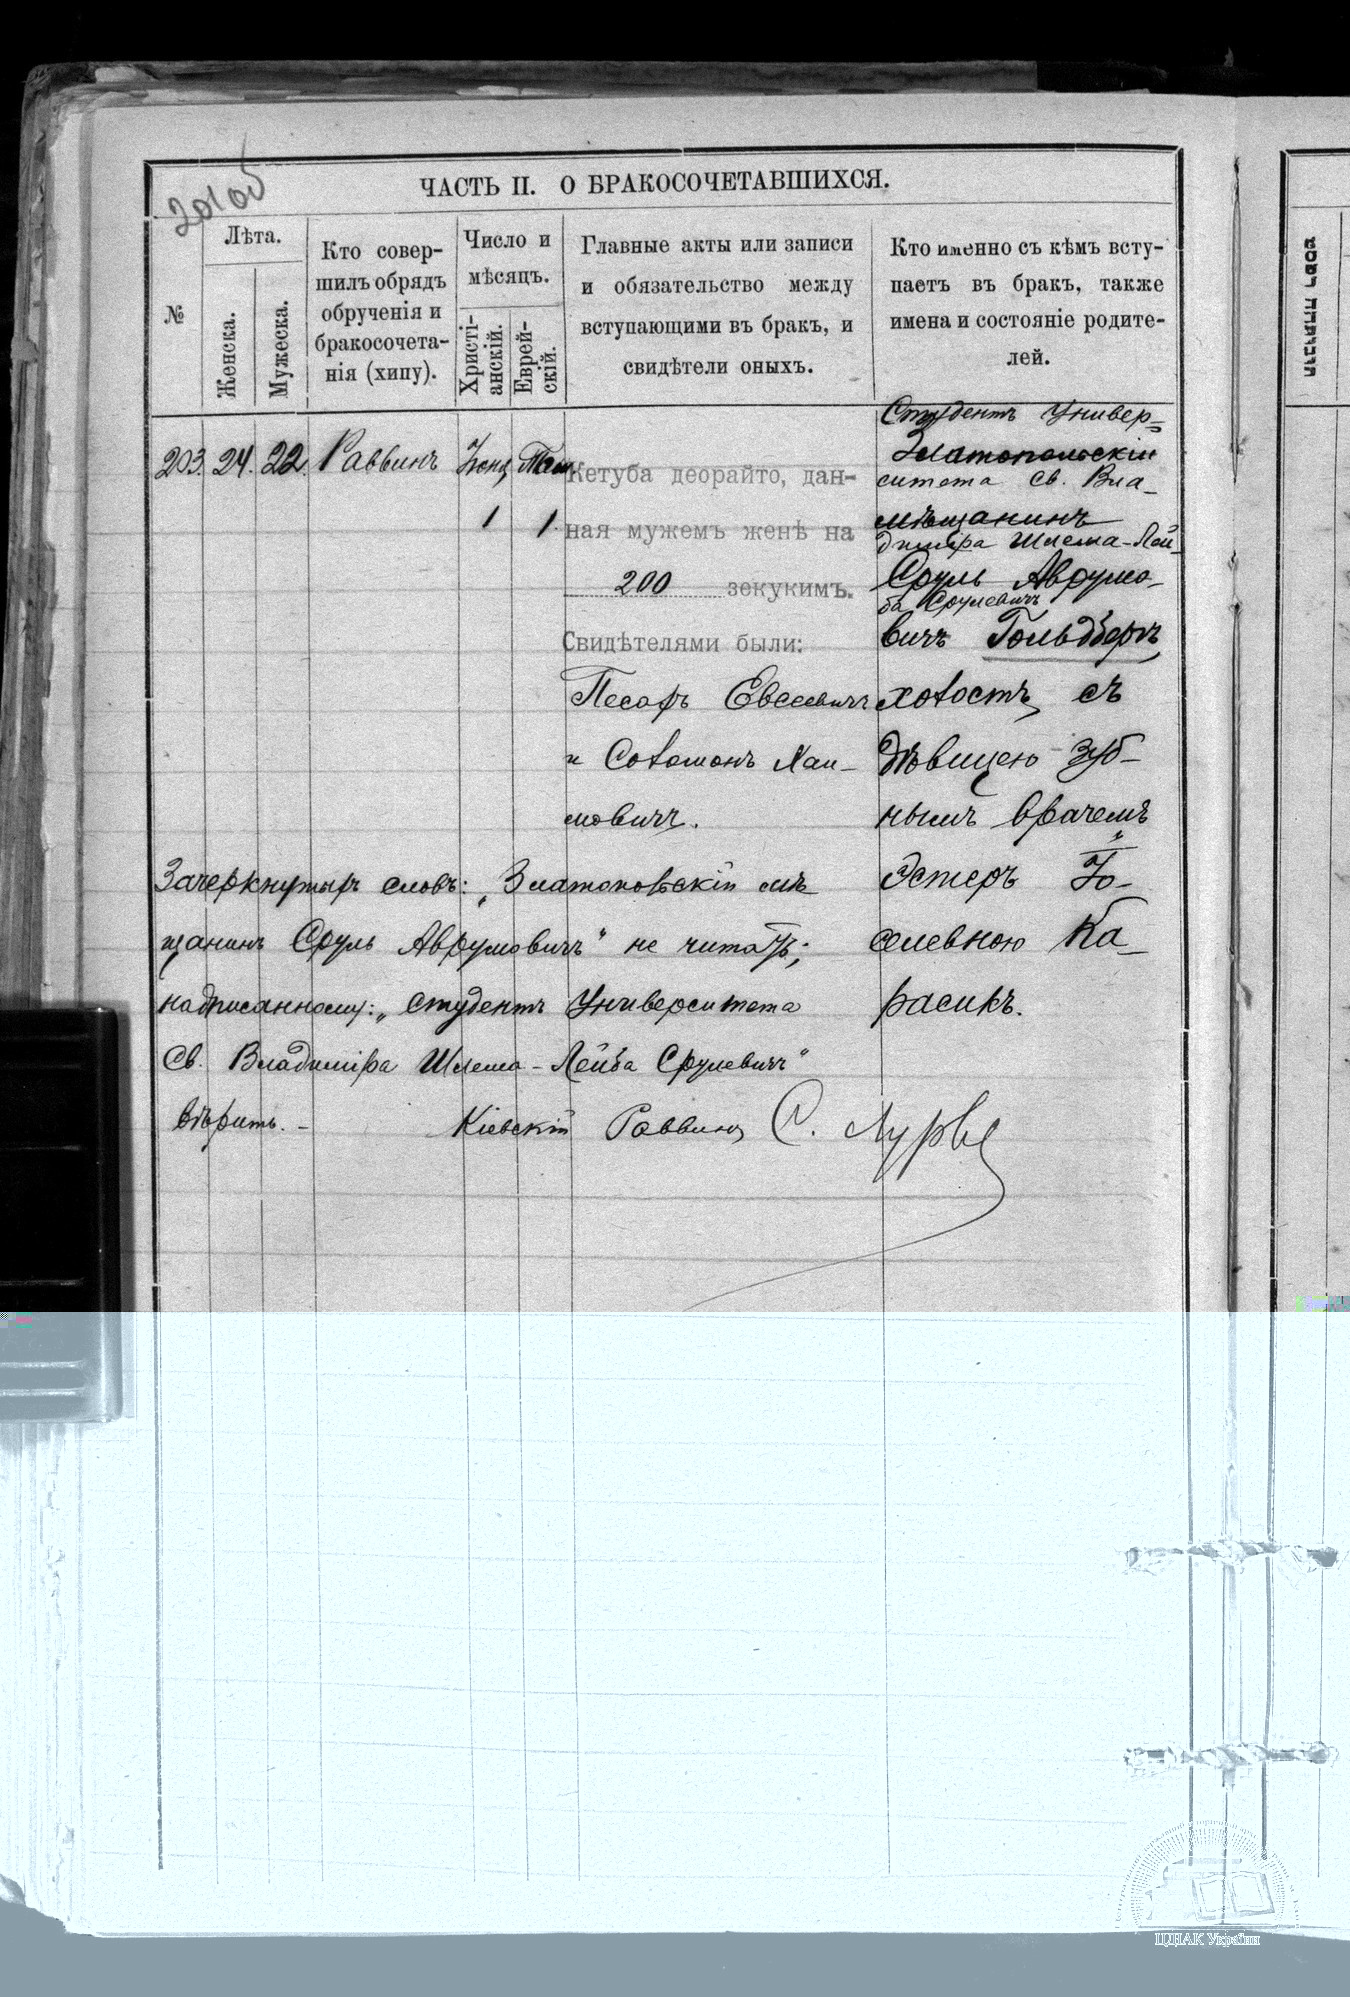 201об
ЧАСТЬ II. О БРАКОСОЧЕТАВШИХСЯ.
№
Лѣта.
Женска.
Мужеска.
Кто совер-
шилъ обрядъ
обрученія и
бракосочета-
нія (хипу).
Число и
мѣсяцъ.
Христі-
анскій.
Еврей-
скій.
Главные акты или записи
и обязательство между
вступающими въ бракъ, и
свидѣтели оныхъ.
Кто именно съ кѣмъ всту-
паетъ въ бракъ, также
имена и состояніе родите-
лей.
203. 24. 22. Раввинъ
1 1.
Кетуба деорайто, дан-
ная мужемъ женѣ на
200 зекукимъ.
Свидѣтелями были:
Песахъ Евсеевичъ
и Соломонъ Хаи-
мовичъ.
Студентъ Универ=
Златопольскій
ситета Св. Вла-
мѣщанинъ
диміра Шлема-Лей-
Сруль Аврумо-
ба Срулевичъ
вичъ Гольдбергъ,
холостъ, съ
дѣвицею зуб-
нымъ врачемъ
Эстеръ Іо-
селевною Ка-
расикъ.
Зачеркнутыхъ словъ: „Златопольскій мѣ
щанинъ Сруль Аврумовичъ" не читать;
надписанному: „студентъ Университета
Св. Владиміра Шлема-Лейба Срулевичъ"
вѣрить. -
Кіевскій Раввинъ С. Лурье
ЦДІАК України